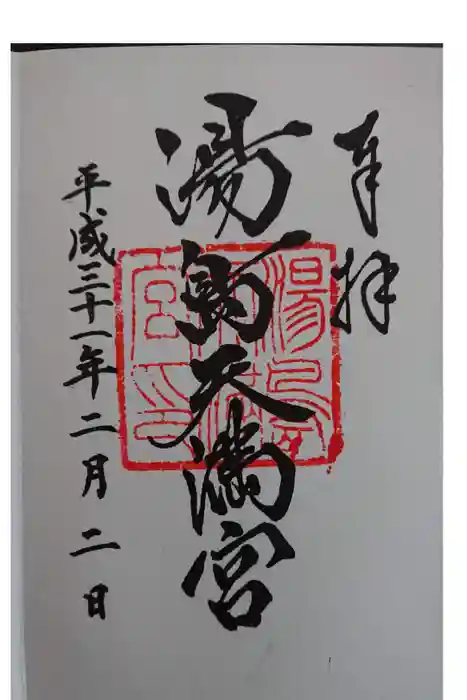 奉拝
湯島天満宮
平成三十一年二月二日